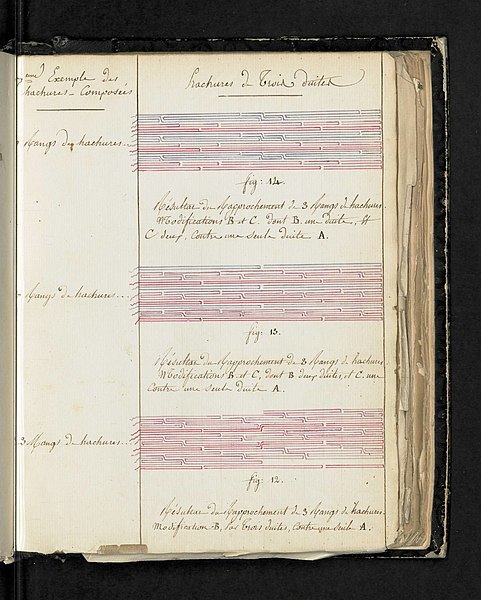 Exemple des
hachures-Composées
hachures de Trois duites
Rangs de hachures...
fig: 14.
Résultat du Rapprochement de 3 Rangs de hachures.
Modifications B et C, dont B une duite, et
C deux, Contre une Seule duite A.
Rangs de hachures...
fig: 13.
Résultat du Rapprochement de 3 Rangs de hachures.
Modifications B et C, dont B deux duites, et C une
Contre une Seule duite A.
3 Rangs de hachures...
fig: 12.
Résultat du Rapprochement de 3 Rangs de hachures.
Modification B, Trois duites, Contre une Seule A.